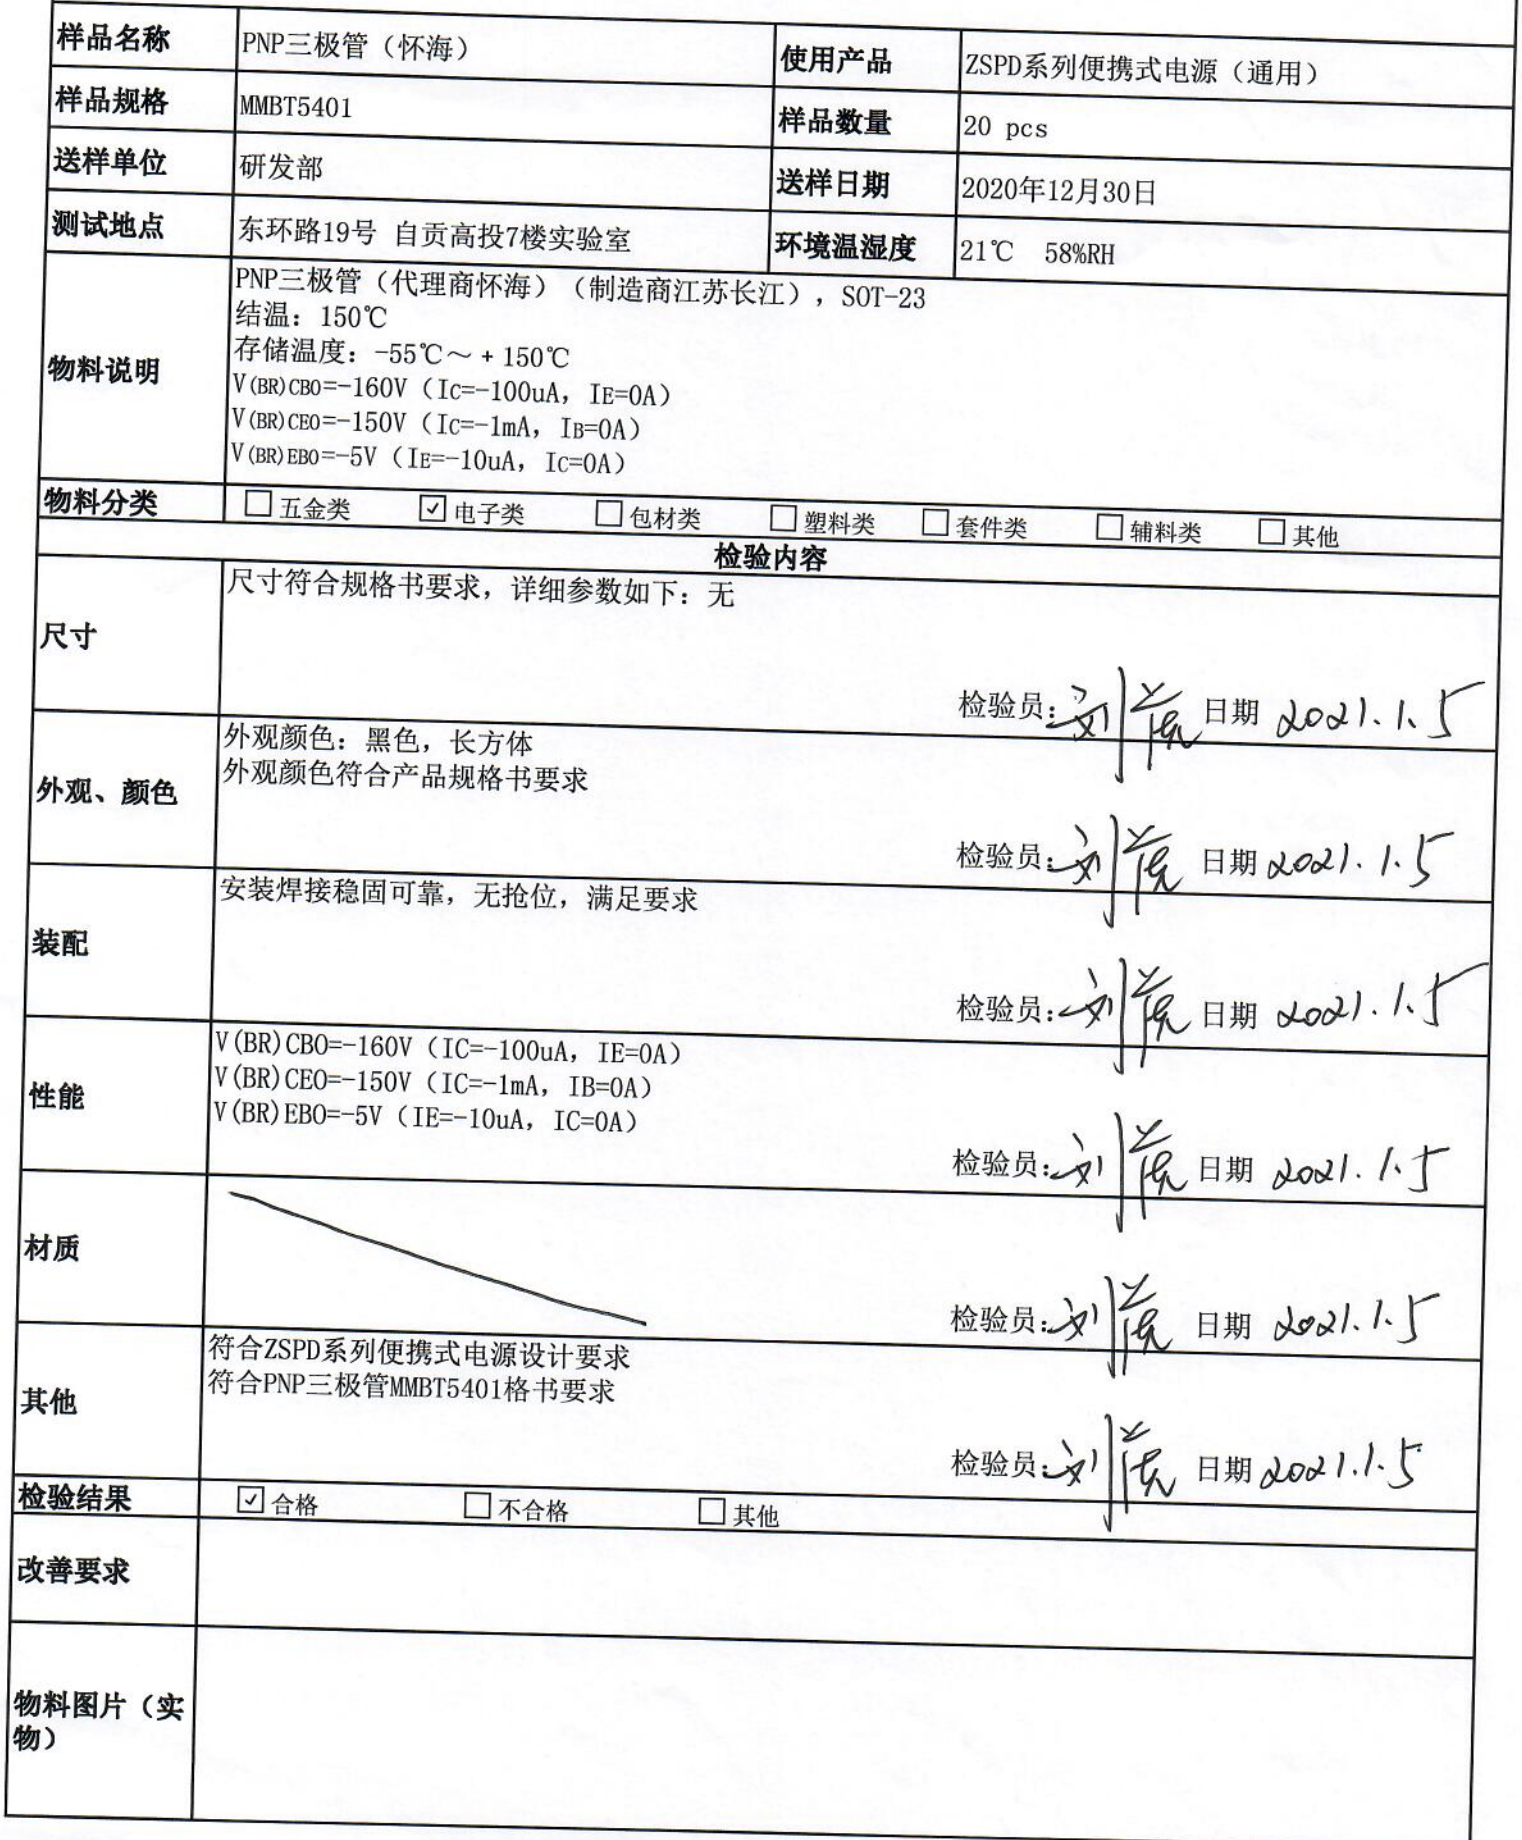 样品名称 PNP三极管（怀海） 使用产品 ZSPD系列便携式电源（通用）
样品规格 MMBT5401 样品数量 20 pcs
送样单位 研发部 送样日期 2020年12月30日
测试地点 东环路19号 自贡高投7楼实验室 环境温湿度 21℃ 58%RH
物料说明
PNP三极管（代理商怀海）（制造商江苏长江），SOT-23
结温：150℃
存储温度：-55℃～+150℃
V(BR)CBO=-160V（IC=-100uA, IE=0A）
V(BR)CEO=-150V（IC=-1mA, IB=0A）
V(BR)EBO=-5V（IE=-10uA, IC=0A）
物料分类 □五金类 ☑电子类 □包材类 □塑料类 □套件类 □辅料类 □其他
检验内容
尺寸
尺寸符合规格书要求，详细参数如下：无
检验员：刘 日期 2021.1.5
外观、颜色
外观颜色：黑色，长方体
外观颜色符合产品规格书要求
检验员：刘 日期 2021.1.5
装配
安装焊接稳固可靠，无抢位，满足要求
检验员：刘 日期 2021.1.5
性能
V(BR)CBO=-160V（IC=-100uA, IE=0A）
V(BR)CEO=-150V（IC=-1mA, IB=0A）
V(BR)EBO=-5V（IE=-10uA, IC=0A）
检验员：刘 日期 2021.1.5
材质
检验员：刘 日期 2021.1.5
其他
符合ZSPD系列便携式电源设计要求
符合PNP三极管MMBT5401格书要求
检验员：刘 日期 2021.1.5
检验结果 ☑合格 □不合格 □其他
改善要求
物料图片（实
物）